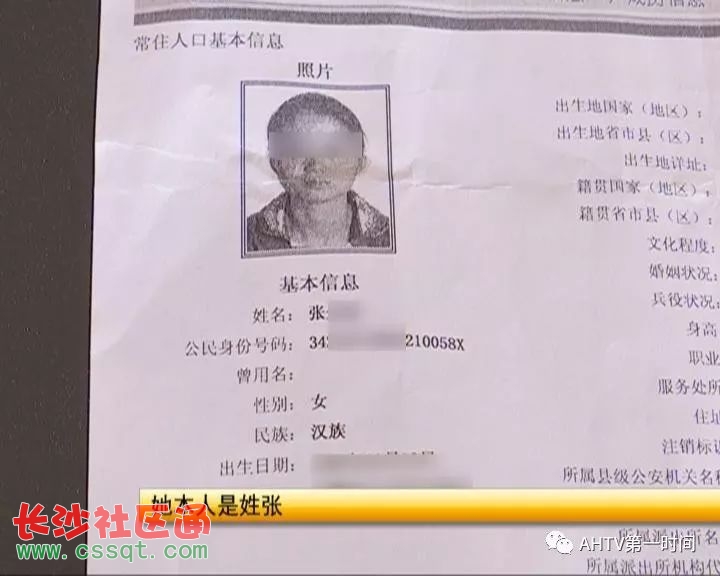 常住人口基本信息
照片
出生地国家（地区）：
出生地省市县（区）：
出生地详址：
籍贯国家（地区）：
籍贯省市县（区）：
文化程度：
婚姻状况：
兵役状况：
身高
职业
服务处所
住址
注销标识
所属县级公安机关名称
所属派出所名
所属派出所机构代
基本信息
姓名： 张
公民身份号码： 34 210058X
曾用名：
性别： 女
民族： 汉族
出生日期：
她本人是姓张
长沙社区通
www.cssqt.com
AHTV第一时间